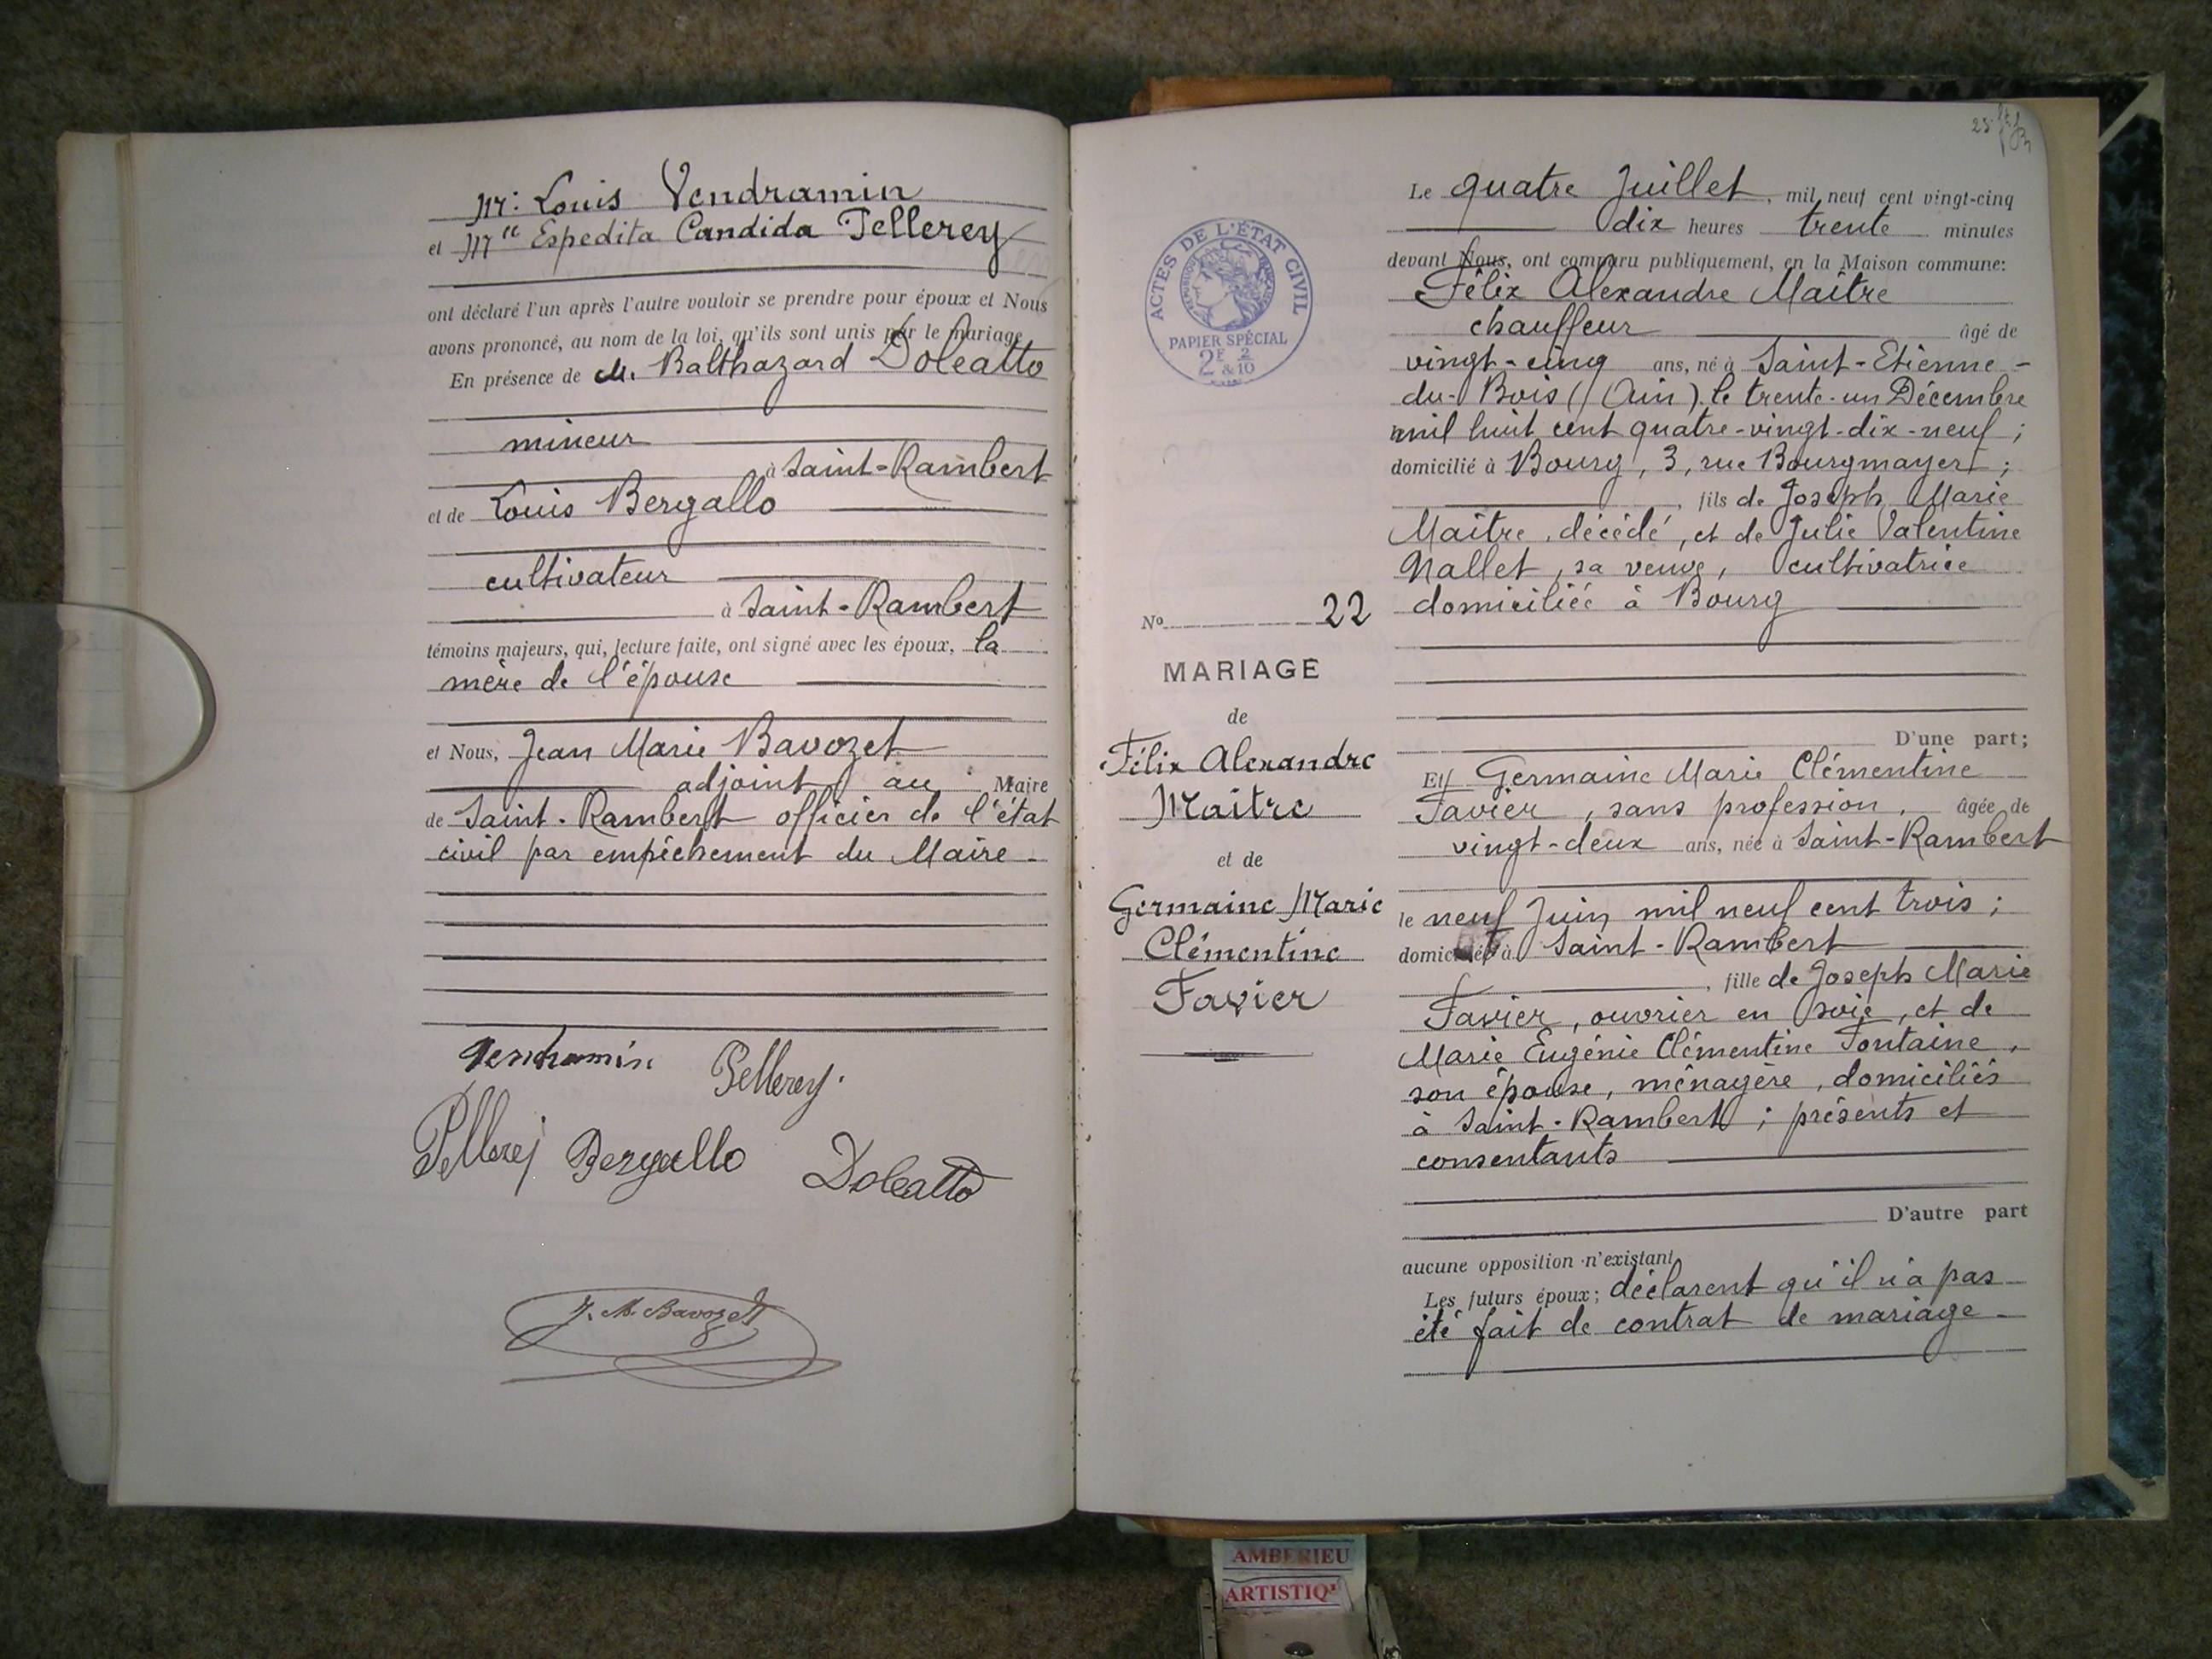 Mr. Louis Vendramin
et Mlle Espedita Candida Pellerey
ont déclaré l'un après l'autre vouloir se prendre pour époux et Nous
avons prononcé, au nom de la loi, qu'ils sont unis par le mariage
En présence de M. Balthazard Doleatto
mineur
à Saint-Rambert
et de Louis Bergallo
cultivateur
à Saint-Rambert
témoins majeurs, qui, lecture faite, ont signé avec les époux, la
mère de l'épouse
et Nous, Jean Marie Bavozet
adjoint au Maire
de Saint-Rambert officier de l'état
civil par empêchement du Maire
Vendramin Pellerey.
Pellerej Bergallo Doleatto
J. M. Bavozet
25
ACTES DE L'ÉTAT CIVIL
RÉPUBLIQUE FRANÇAISE
PAPIER SPÉCIAL
2F 2
&10
No 22
MARIAGE
de
Félix Alexandre
Maître
et de
Germaine Marie
Clémentine
Favier
Le quatre Juillet, mil neuf cent vingt-cinq
dix heures trente minutes
devant Nous, ont comparu publiquement, en la Maison commune:
Félix Alexandre Maître
chauffeur âgé de
vingt-cinq ans, né à Saint-Etienne-
du-Bois (Ain) le trente-un Décembre
mil huit cent quatre-vingt-dix-neuf;
domicilié à Bourg, 3, rue Bourgmayer;
, fils de Joseph Marie
Maître, décédé, et de Julie Valentine
Nallet, sa veuve, cultivatrice
domiciliée à Bourg
D'une part;
Et Germaine Marie Clémentine
Favier, sans profession, âgée de
vingt-deux ans, née à Saint-Rambert
le neuf Juin mil neuf cent trois;
domiciliée à Saint-Rambert
, fille de Joseph Marie
Favier, ouvrier en soie, et de
Marie Eugénie Clémentine Fontaine,
son épouse, ménagère, domiciliés
à Saint-Rambert; présents et
consentants
D'autre part
aucune opposition n'existant
Les futurs époux; déclarent qu'il n'a pas
été fait de contrat de mariage
AMBERIEU
ARTISTIQ